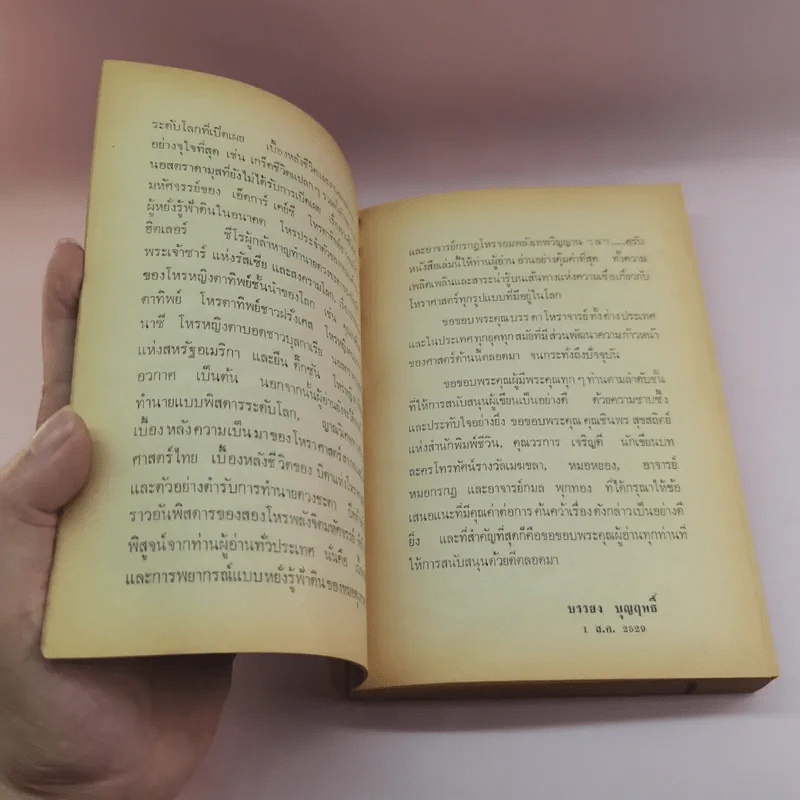 ระดับโลกที่เปิดเผย เบื้องหลังชีวิตและ
อย่างจุใจที่สุด เช่น เกร็ดชีวิตแปลกๆ
นอสตราดามุสที่ยังไม่ได้รับการเปิดเผย
มหัศจรรย์ของ เอ็ดการ์ เคย์ซี
ผู้หยั่งรู้ฟ้าดินในอนาคต โหรประจำตัวของ
ฮิตเลอร์ ชีโรผู้กล้าหาญทำนายดวงชะตา
พระเจ้าซาร์ แห่งรัสเซีย และสงครามโลก
ของโหรหญิงตาทิพย์ชั้นนำของโลก เช่น
ตาทิพย์ โหรตาทิพย์ชาวฝรั่งเศส
นาซี โหรหญิงตาบอดชาวบุลกาเรีย
แห่งสหรัฐอเมริกา และยีน ดิ๊กซัน
อวกาศ เป็นต้น นอกจากนั้นผู้อ่านยังจะได้
ทำนายแบบพิสดารระดับโลก,
เบื้องหลังความเป็นมาของโหราศาสตร์
ศาสตร์ไทย เบื้องหลังชีวิตของ บิดาแห่งโหร
และตัวอย่างตำรับการทำนายดวงชะตา
ราวอันพิสดารของสองโหรพลังจิตมหัศจรรย์
พิสูจน์จากท่านผู้อ่านทั่วประเทศ นั่นคือ
และการพยากรณ์แบบหยั่งรู้ฟ้าดินของหมอ
และอาจารย์กรกฎโหรจอมพลังเทพวิญญาน ฯลฯ
หนังสือเล่มนี้ให้ท่านผู้อ่าน อ่านอย่างคุ้มค่าที่สุด ทั้งความ
เพลิดเพลินและสาระน่ารู้บนเส้นทางแห่งความเชื่อเกี่ยวกับ
โหราศาสตร์ทุกรูปแบบที่มีอยู่ในโลก
ขอขอบพระคุณบรรดาโหราจารย์ทั้งต่างประเทศ
และในประเทศทุกยุคทุกสมัยที่มีส่วนพัฒนาความก้าวหน้า
ของศาสตร์ด้านนี้ตลอดมา จนกระทั่งถึงปัจจุบัน
ขอขอบพระคุณผู้มีพระคุณทุกๆท่านตามลำดับชั้น
ที่ให้การสนับสนุนผู้เขียนเป็นอย่างดี ด้วยความซาบซึ้ง
และประทับใจอย่างยิ่ง ขอขอบพระคุณ คุณชินพร สุขสถิตย์
แห่งสำนักพิมพ์ชีวิน, คุณวรการ เจริญดี นักเขียนบท
ละครโทรทัศน์รางวัลเมขขลา, หมอหยอง, อาจารย์
หมอกรกฎ และอาจารย์กมล พุกทอง ที่ได้กรุณาให้ข้อ
เสนอแนะที่มีคุณค่าต่อการค้นคว้าเรื่องดังกล่าวเป็นอย่างดี
ยิ่ง และที่สำคัญที่สุดก็คือขอขอบพระคุณผู้อ่านทุกท่านที่
ให้การสนับสนุนด้วยดีตลอดมา
บรรยง บุญฤทธิ์
1 ส.ค. 2529